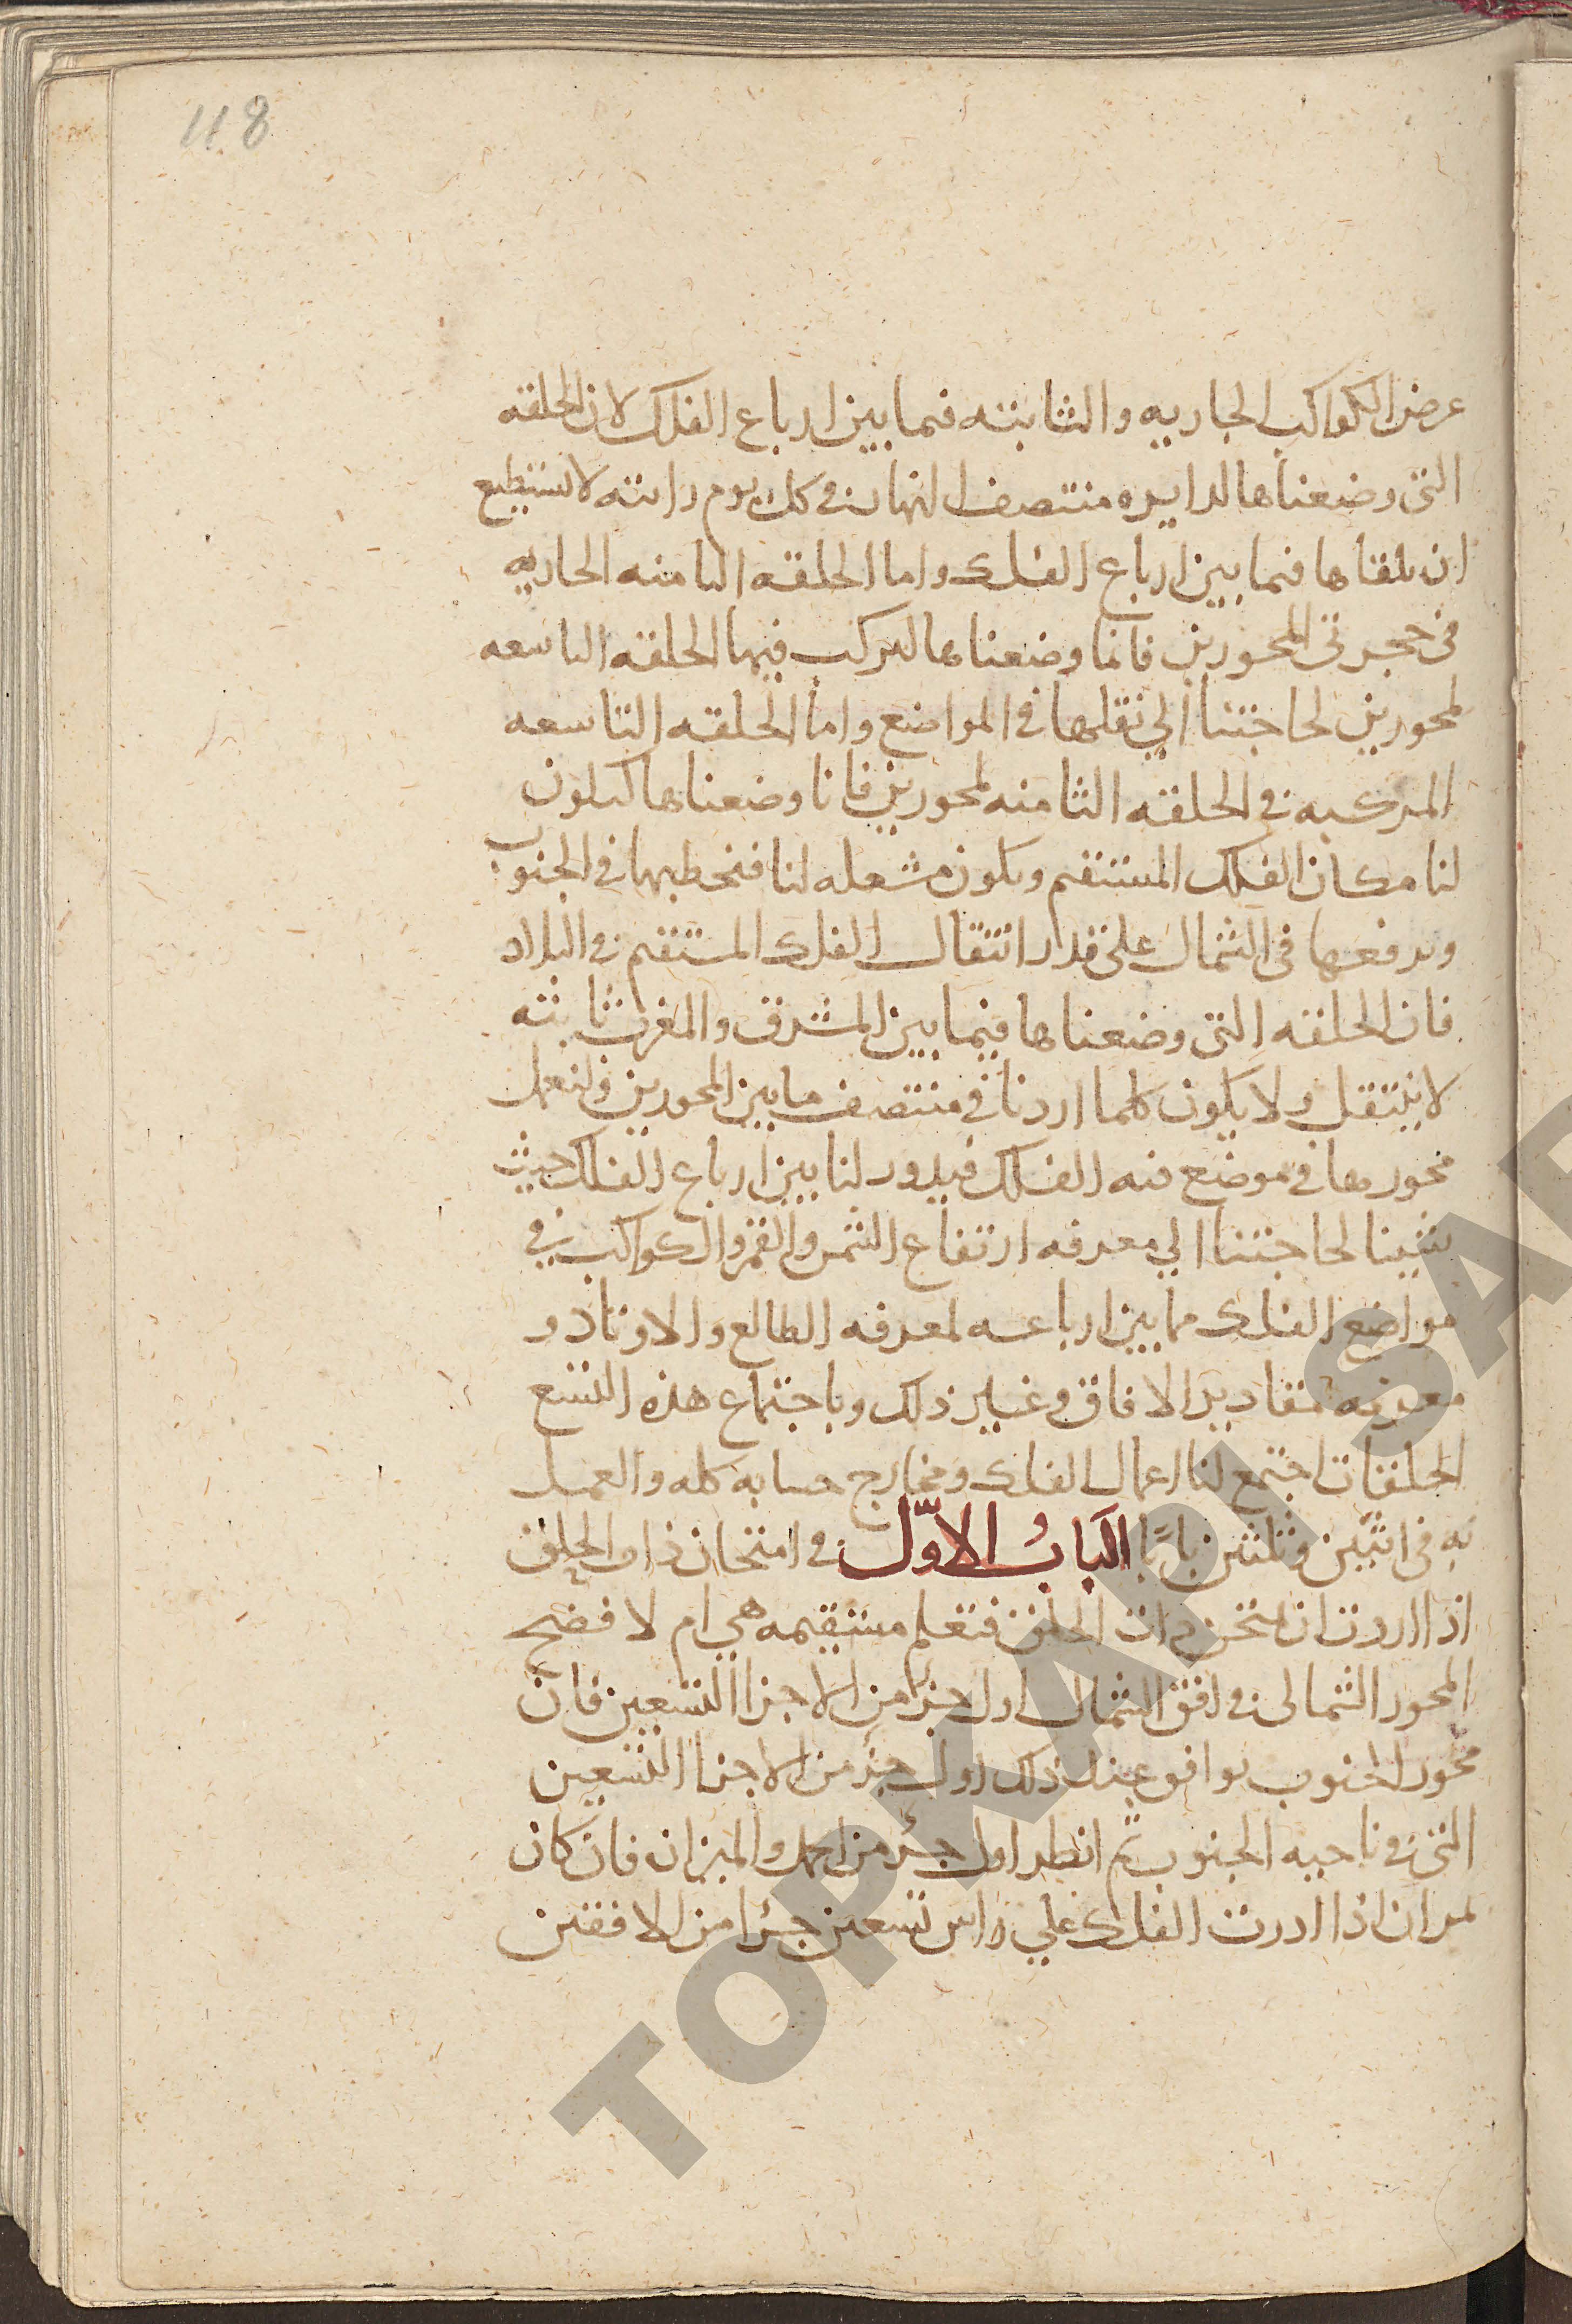 118
عرض الكواكب الجاريه والثابته فيما بين ارباع الفلك لان الحلقه
التى وضعناها لدايره منتصف النهار فى كل يوم راتبه لا نستطيع
ان نلقاها فيما بين ارباع الفلك واما الحلقه الثامنه الجاريه
فى حجرتى المحورين فانما وضعناها لنركب فيها الحلقه التاسعه
لمحورين لحاجتنا الي نقلها فى المواضع واما الحلقه التاسعه
المركبه فى الحلقه الثامنه لمحورين فانا وضعناها ليكون
لنا مكان الفلك المستقيم ويكون مشعله لنا فنحطها فى الجنوب
ونرفعها فى الشمال على قدر انتقال الفلك المستقيم فى البلاد
فان الحلقه التى وضعناها فيما بين المشرق والمغرب ثابته
لا ينتقل ولا يكون كلما اردنا فى منتصف ما بين المحورين ولنعمل
محورها فى موضع فيه الفلك فيدور لنا بين ارباع الفلك حيث
شينا لحاجتنا الي معرفه ارتفاع الشمس والقمر والكواكب فى
مواضع الفلك مما بين ارباعه لمعرفه الطالع والاوتاد و
معرفه مقادير الافاق وغير ذلك وباجتماع هذه التسع
الحلقات اجتمع لنا اعمال الفلك ومخارج حسابه كله والعمل
به فى اثنين وثلثين بابًا البابُ الاوّل فى امتحان ذات الحلق
اذا اردت ان تمتحن ذات الحلق فتعلم مستقيمه هي ام لا فضح
المحور الشمالى فى افق الشمال اول جزءا من الاجزا التسعين فان
محور الجنوب يوافق عند ذلك اول جزء من الاجزا التسعين
التى فى ناحيه الجنوب ثم انظر اول جزء من الحمل والميزان فان كان
يمران اذا ادرت الفلك علي راس تسعين جزءا من الافقين